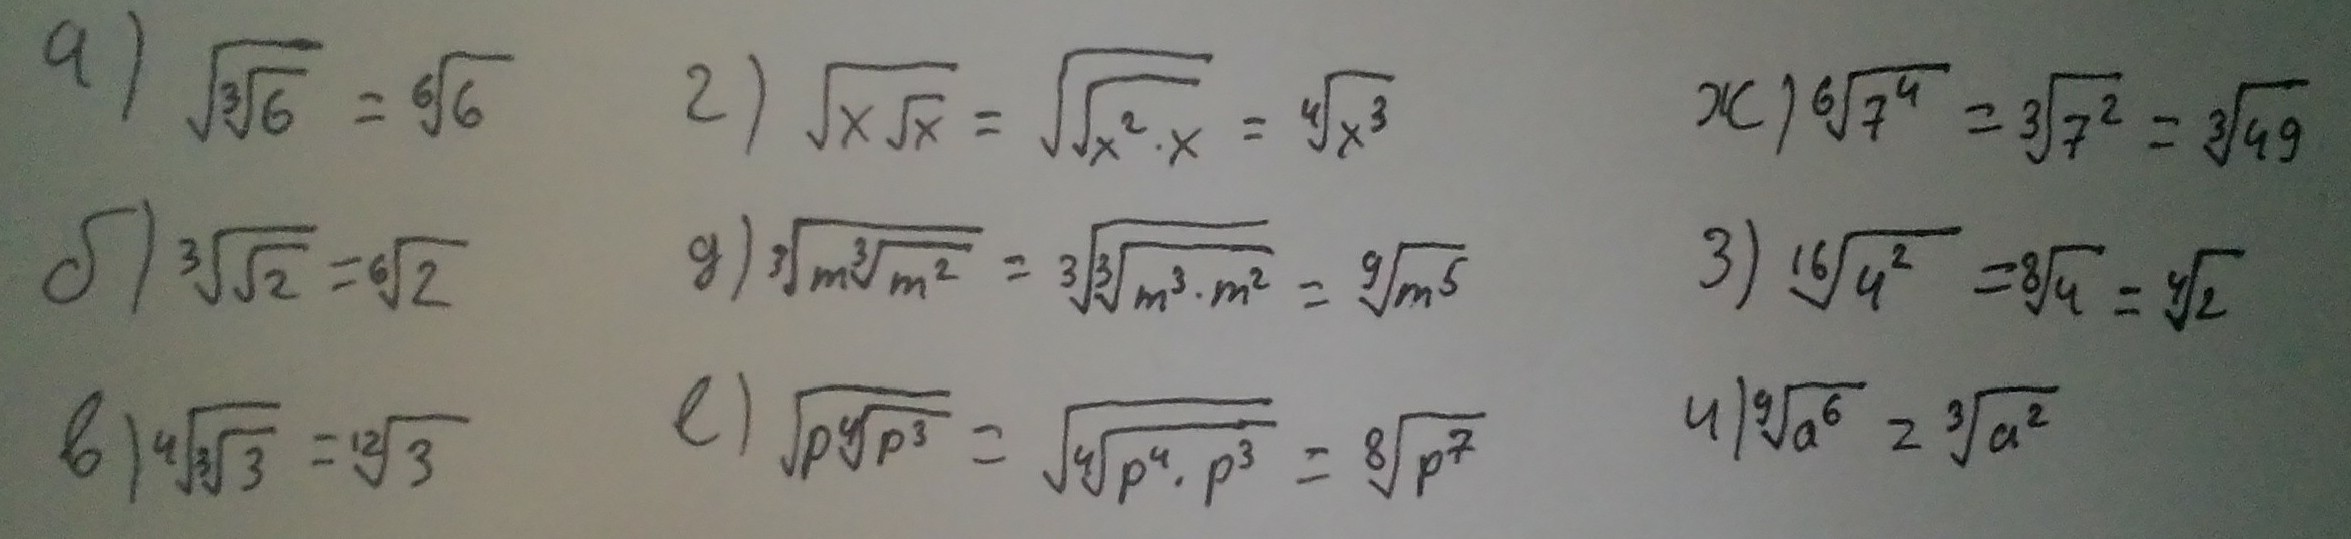 а) √(∛6) = ⁶√6
б) ∛(√2) = ⁶√2
в) ⁴√(∛3) = ¹²√3
г) √(x√x) = √(√(x²·x)) = ⁴√(x³)
д) ∛(m∛(m²)) = ∛(∛(m³·m²)) = ⁹√(m⁵)
е) √(p⁴√(p³)) = √(⁴√(p⁴·p³)) = ⁸√(p⁷)
ж) ⁶√(7⁴) = ∛(7²) = ∛49
з) ¹⁶√(4²) = ⁸√4 = ⁴√2
и) ⁹√(a⁶) = ∛(a²)